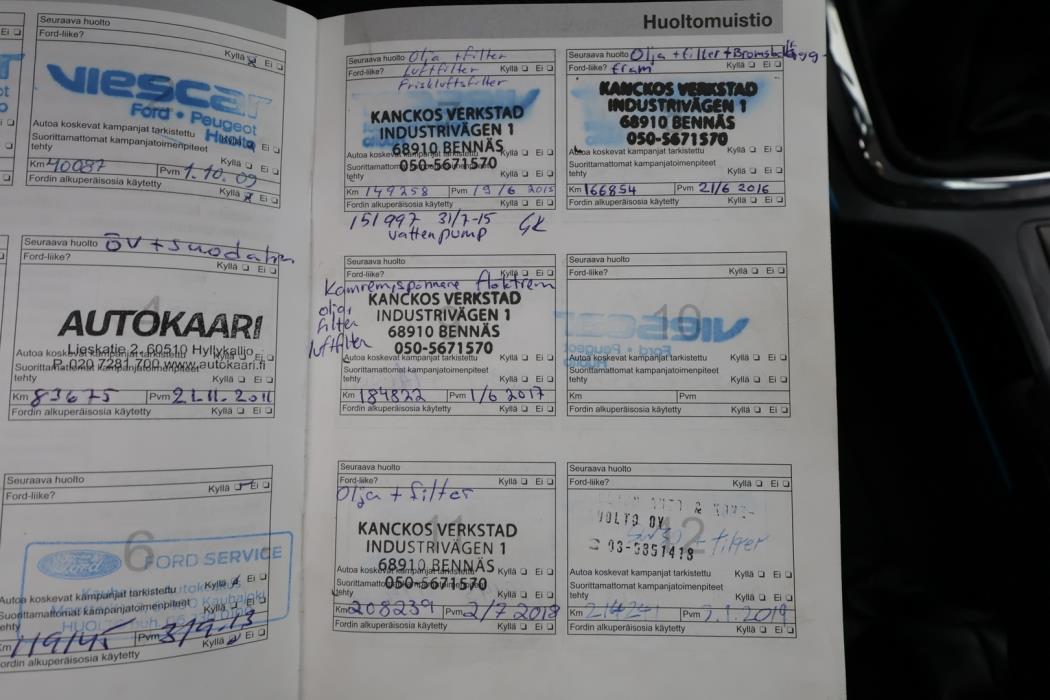 Seuraava huolto
Ford-liike?
Kyllä Ei
viescar
Ford • Peugeot
Huolto
Autoa koskevat kampanjat tarkistettu
Kyllä Ei
Suorittamattomat kampanjatoimenpiteet
tehty
Kyllä Ei
Km 40087 Pvm 1.10.09
Fordin alkuperäisosia käytetty Kyllä Ei
Seuraava huolto ÖV + suodatin
Ford-liike?
Kyllä Ei
AUTOKAARI
Lieskatie 2, 60510 Hyllykallio
Autoa koskevat kampanjat tarkistettu Kyllä Ei
P. 020 7281 700 www.autokaari.fi
Suorittamattomat kampanjatoimenpiteet
tehty Kyllä Ei
Km 83675 Pvm 21.11.2011
Fordin alkuperäisosia käytetty Kyllä Ei
Seuraava huolto
Ford-liike? Kyllä Ei
6
Ford FORD SERVICE
Autoa koskevat kampanjat tarkistettu Kyllä Ei
Suorittamattomat kampanjatoimenpiteet
tehty Kyllä Ei
Km 119145 Pvm 3/9-13
Fordin alkuperäisosia käytetty Kyllä Ei
Huoltomuistio
Seuraava huolto Olja + filter
Ford-liike? Luftfilter Kyllä Ei
Friskluftsfilter
KANCKOS VERKSTAD
INDUSTRIVÄGEN 1
68910 BENNÄS
Autoa koskevat kampanjat tarkistettu Kyllä Ei
050-5671570
Suorittamattomat kampanjatoimenpiteet
tehty Kyllä Ei
Km 149258 Pvm 19/6 2015
Fordin alkuperäisosia käytetty Kyllä Ei
151997 31/7-15 GK
vattenpump
Seuraava huolto Olja + filter + Bromsbelägg
Ford-liike? fram Kyllä Ei
KANCKOS VERKSTAD
INDUSTRIVÄGEN 1
68910 BENNÄS
050-5671570
Autoa koskevat kampanjat tarkistettu Kyllä Ei
Suorittamattomat kampanjatoimenpiteet
tehty Kyllä Ei
Km 166854 Pvm 21/6 2016
Fordin alkuperäisosia käytetty Kyllä Ei
Seuraava huolto
Ford-liike? Kyllä Ei
Kamremsspännare fläktrem
olja,
filter
luftfilter
KANCKOS VERKSTAD
INDUSTRIVÄGEN 1
68910 BENNÄS
050-5671570
Autoa koskevat kampanjat tarkistettu Kyllä Ei
Suorittamattomat kampanjatoimenpiteet
tehty Kyllä Ei
Km 184822 Pvm 1/6 2017
Fordin alkuperäisosia käytetty Kyllä Ei
Seuraava huolto
Ford-liike? Kyllä Ei
10
Autoa koskevat kampanjat tarkistettu Kyllä Ei
Suorittamattomat kampanjatoimenpiteet
tehty Kyllä Ei
Km Pvm
Fordin alkuperäisosia käytetty Kyllä Ei
Seuraava huolto
Ford-liike? Kyllä Ei
Olja + filter
11
KANCKOS VERKSTAD
INDUSTRIVÄGEN 1
68910 BENNÄS
Autoa koskevat kampanjat tarkistettu Kyllä Ei
050-5671570
Suorittamattomat kampanjatoimenpiteet
tehty Kyllä Ei
Km 208239 Pvm 2/7 2018
Fordin alkuperäisosia käytetty Kyllä Ei
Seuraava huolto
Ford-liike? Kyllä Ei
12
OY
5W30 + filter
Autoa koskevat kampanjat tarkistettu Kyllä Ei
Suorittamattomat kampanjatoimenpiteet
tehty Kyllä Ei
Km Pvm 7.1.2019
Fordin alkuperäisosia käytetty Kyllä Ei